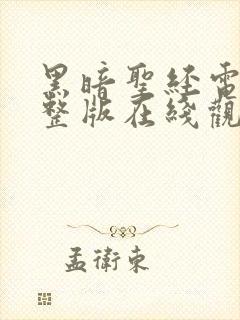 黑暗聖經電
整版在綫觀
孟衛東